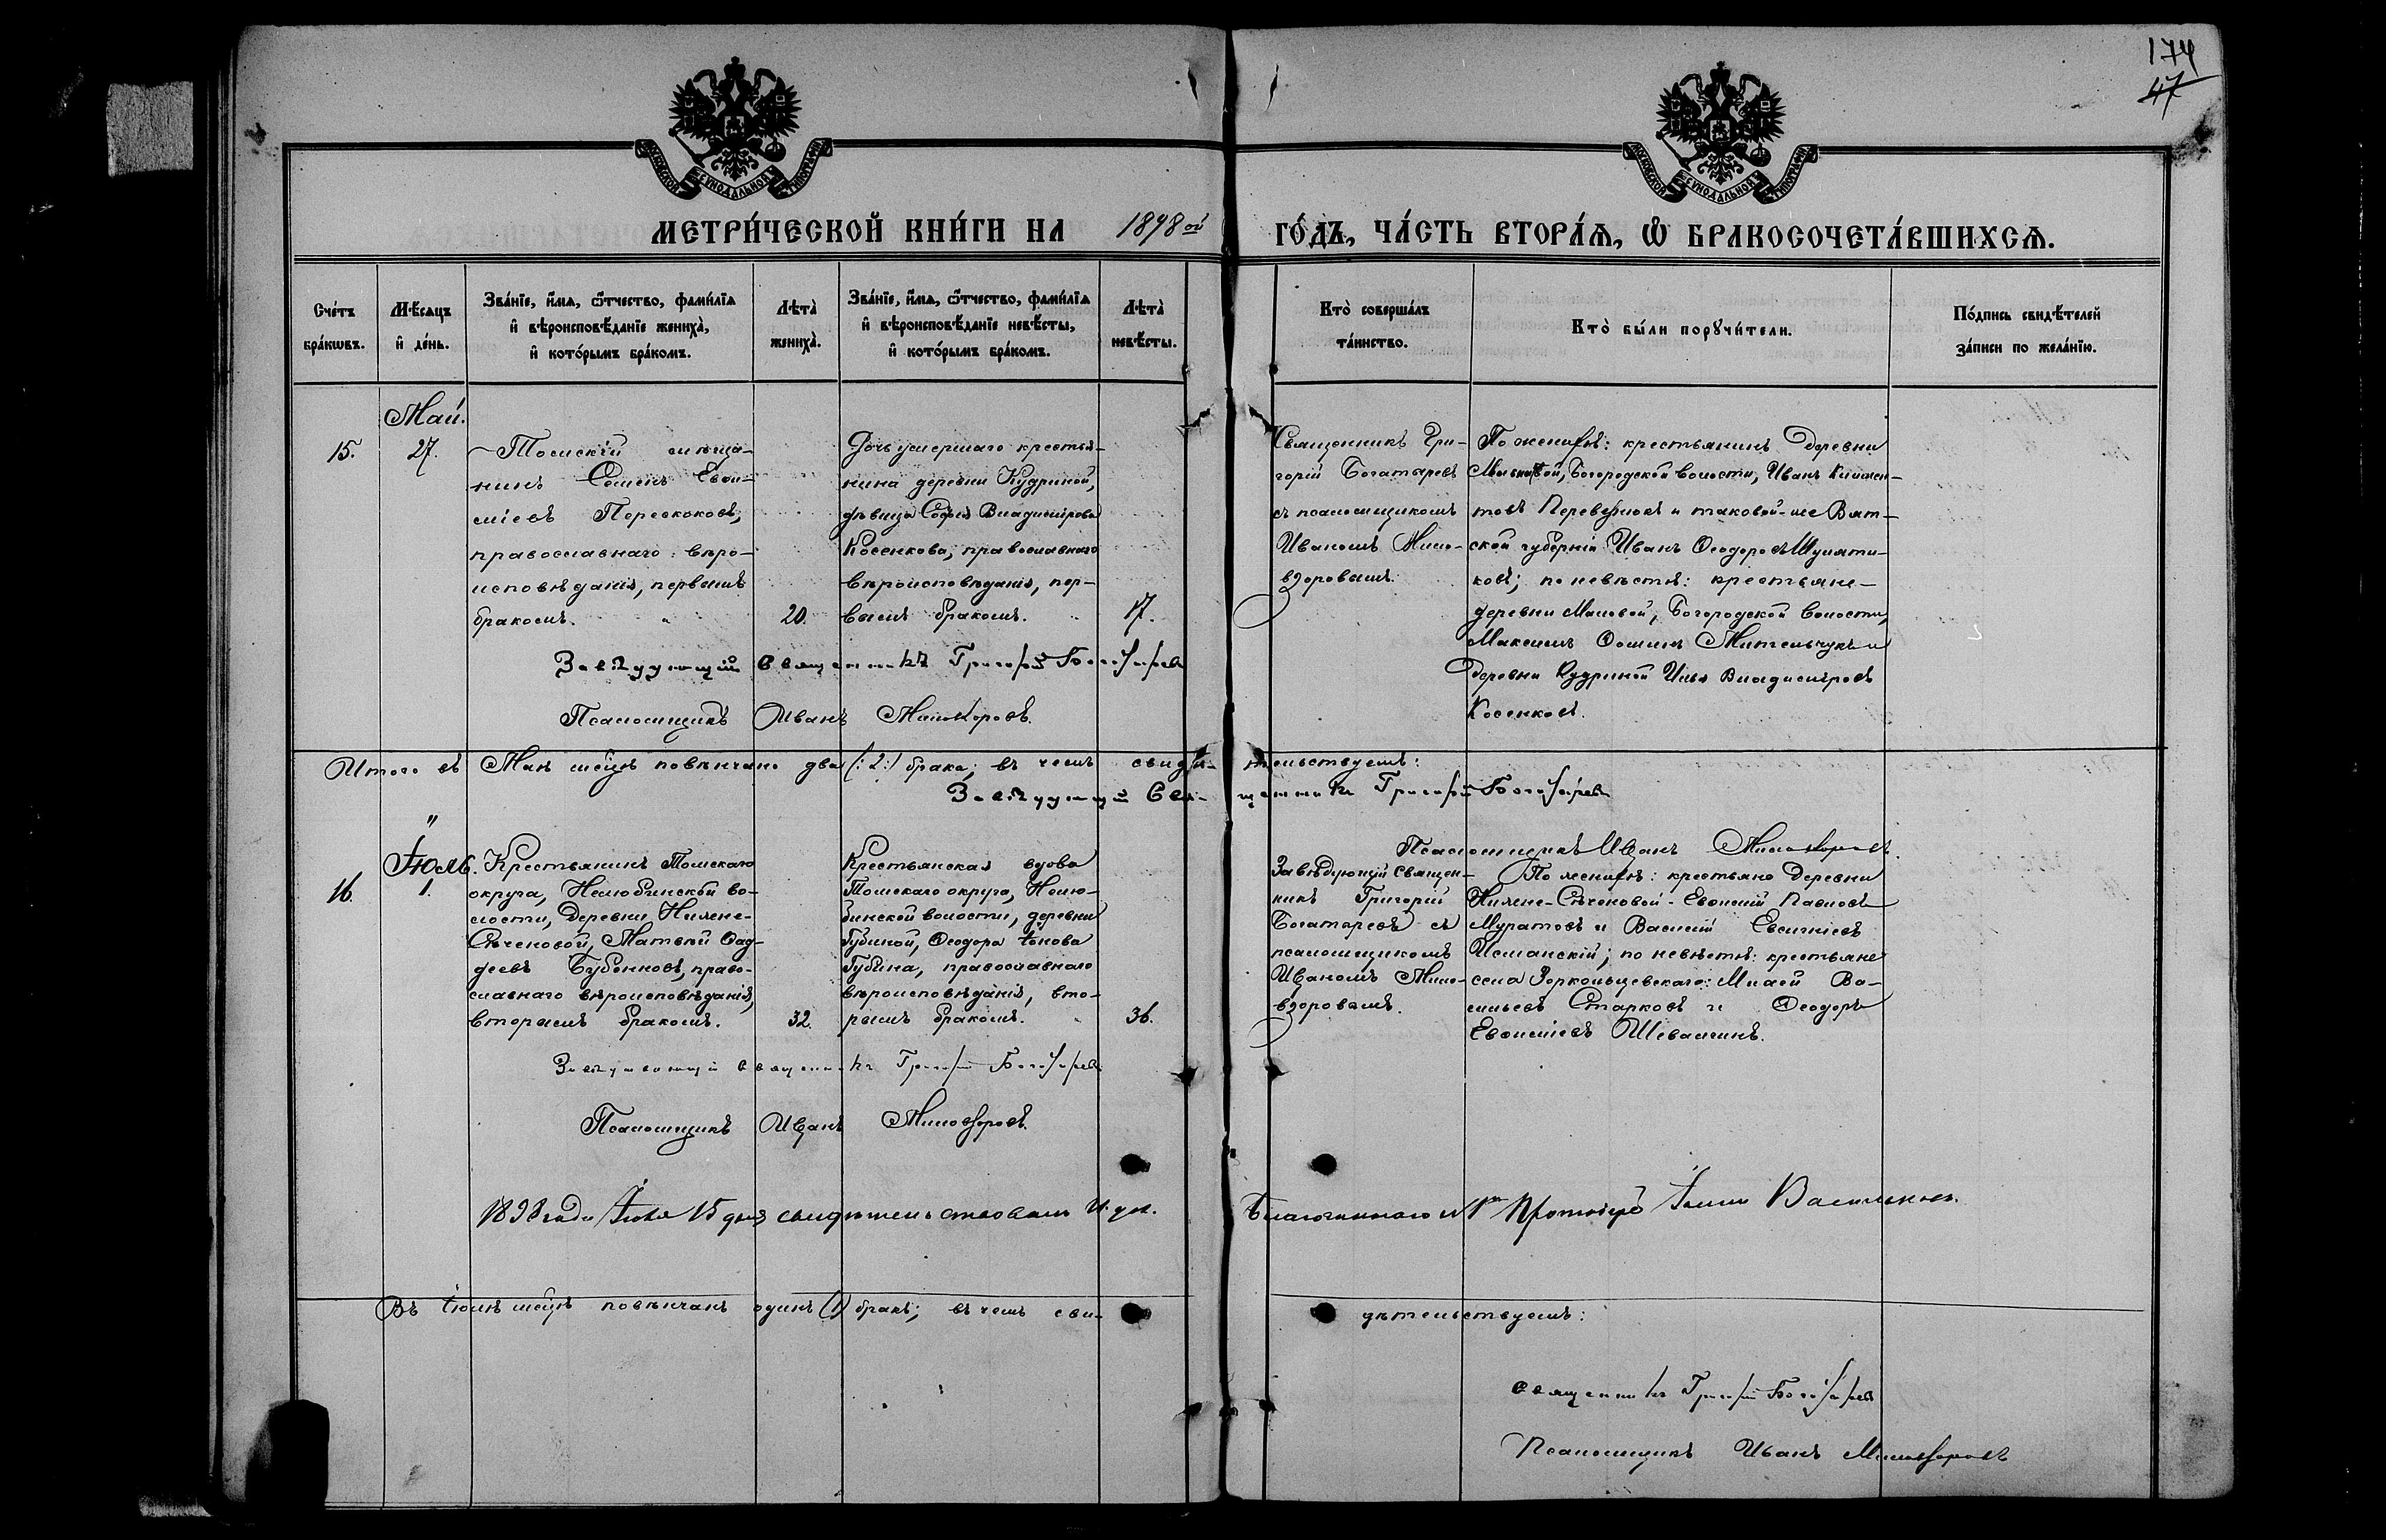 174
47
МОСКОВСКОЙ СѴНОДАЛЬНОЙ ТИПОГРАФІИ
МОСКОВСКОЙ СѴНОДАЛЬНОЙ ТИПОГРАФІИ
МЕТРИ́ЧЕСКОЙ КНИ́ГИ НА 1898 ой
ГО́ДЪ, ЧА́СТЬ ВТОРА́Ѧ, Ѡ҆ БРАКОСОЧЕТА́ВШИХСѦ.
Сче́тъ
бра́кѡвъ.
Мѣ́сяцъ
и҆ де́нь.
Зва́нїе, и҆́мѧ, ѻ҆́тчество, фами́лїѧ
и҆ вѣроисповѣ́данїе жениха̀,
и҆ кото́рымъ бра́комъ.
Лѣта̀
жениха̀.
Зва́нїе, и҆́мѧ, ѻ҆́тчество, фами́лїѧ
и҆ вѣроисповѣ́данїе невѣ́сты,
и҆ кото́рымъ бра́комъ.
Лѣта̀
невѣ́сты.
Кто̀ соверша́лъ
та́инство.
Кто̀ бы́ли порꙋчи́тели.
По́дпись свидѣ́телей
за́писи по жела́нїю.
Май.
15.
27.
Томскій мѣща-
нинъ Семенъ Евѳи-
міевъ Перескоковъ,
православнаго вѣро-
исповѣданія, первымъ
бракомъ.
20.
Дочь умершаго крестья-
нина деревни Кудриной,
дѣвица Софія Владимірова
Косенкова, православнаго
вѣроисповѣданія, пер-
вымъ бракомъ.
17.
Священникъ Гри-
горій Богатыревъ
съ псаломщикомъ
Иваномъ Мило-
взоровымъ.
По женихѣ: крестьянинъ деревни
Богородской волости, Иванъ Климен-
товъ и таковой-же Вят-
ской губерніи Иванъ Ѳеодоровъ
ковъ; по невѣстѣ: крестьяне
деревни Богородской волости,
Максимъ Ѳоминъ и
деревни Кудриной Илья Владиміровъ
Косенковъ.
Завѣдующій Священникъ Григорій Богатыревъ
Псаломщикъ Иванъ Миловзоровъ.
Итого въ Маѣ мѣсяцѣ повѣнчано два (:2:) брака; въ чемъ свидѣ-
тельствуемъ:
Завѣдующій Свя-
щенникъ Григорій Богатыревъ
Псаломщикъ Иванъ Миловзоровъ.
"
Іюль.
16.
1.
Крестьянинъ Томскаго
округа, Нелюбинской во-
лости, деревни Нижне-
Сѣченовой, Матвѣй Ѳад-
деевъ Бубенковъ, право-
славнаго вѣроисповѣданія,
вторымъ бракомъ.
32.
Крестьянская вдова
Томскаго округа, Нелю-
бинской волости, деревни
Губиной, Ѳеодора Іонова
Губина, православнаго
вѣроисповѣданія, вто-
рымъ бракомъ.
36.
Завѣдующій Священ-
никъ Григорій
Богатыревъ съ
псаломщикомъ
Иваномъ Мило-
взоровымъ.
По женихѣ: крестьяне деревни
Нижне-Сѣченовой - Евѳимій Павловъ
Муратовъ и Василій Евсигніевъ
Исманскій; по невѣстѣ: крестьяне
села Зоркольцевскаго: Ва-
сильевъ Старковъ и Ѳеодоръ
Евѳиміевъ Шевалинъ.
Завѣдующій Священникъ Григорій Богатыревъ
Псаломщикъ Иванъ Миловзоровъ.
1898 года Іюля 15 дня свидѣтельствовалъ И. дол.
Благочиннаго №1 Протоіерей Васильковъ.
Въ Іюлѣ мѣсяцѣ повѣнчанъ одинъ (1) бракъ; въ чемъ сви-
дѣтельствуемъ:
Священникъ Григорій Богатыревъ
Псаломщикъ Иванъ Миловзоровъ